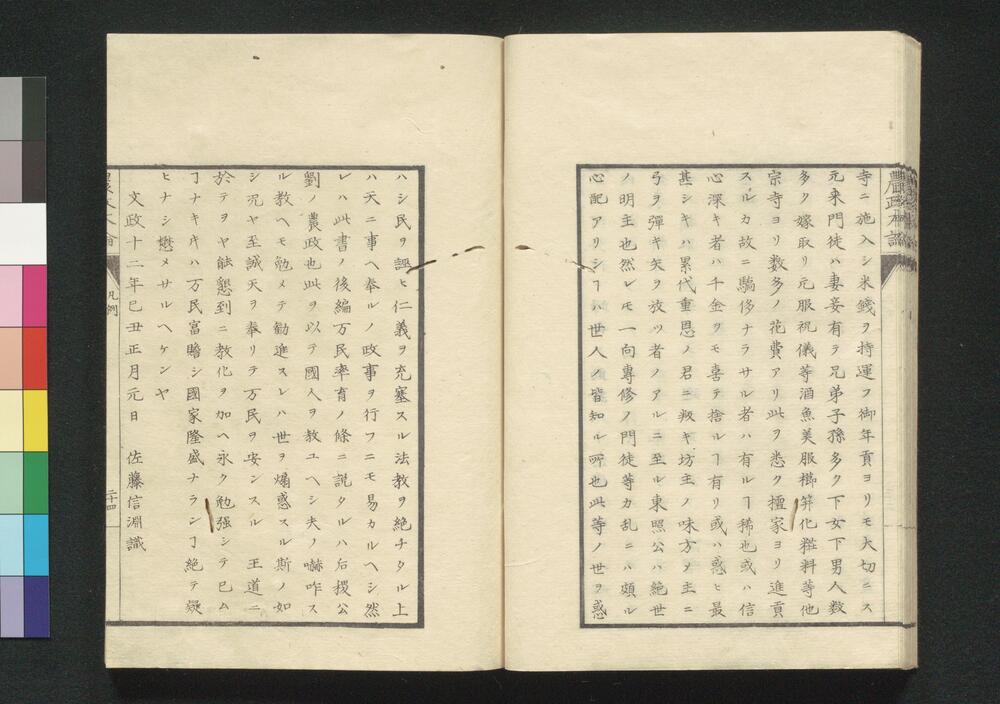 農政本論
寺ニ施入シ米錢ヲ持運フ御年貢ヨリモ大切ニス
元来門徒ハ妻妾有テ兄弟子孫多ク下女下男人数
多ク嫁取リ元服祝儀等酒魚美服櫛笄化粧料等他
宗寺ヨリ数多ノ花費アリ此ヲ悉ク擅家ヨリ進貢
スルカ故ニ驕侈ナラサル者ハ有ルヿ稀也或ハ信
心深キ者ハ千金ヲモ喜テ捨ルヿ有リ或ハ惑ヒ最
甚シキハ累代重恩ノ君ニ叛キ坊主ノ味方ヲ主ニ
弓ヲ彈キ矢ヲ放ツ者ノアルニ至ル東照公ハ絶世
ノ明主也然レモ一向專修ノ門徒等カ乱ニハ頗ル
心配アリシヿハ世人ノ皆知ル所也此等ノ世ヲ惑
ハシ民ヲ誣ヒ仁義ヲ充塞スル法教ヲ絶チタル上
ハ天ニ事ヘ奉ルノ政事ヲ行フニモ易カルヘシ然
レハ此書ノ後編万民率育ノ條ニ説タルハ后稷公
劉ノ農政也此ヲ以テ國人ヲ教ユヘシ夫ノ嚇咋ス
ル教ヘモ勉メテ勧進スレハ世ヲ煽惑スル斯ノ如
シ况ヤ至誠天ヲ奉リテ万民ヲ安ンスル 王道ニ
於テヲヤ能懇到ニ教化ヲ加ヘ永ク勉强シテ已ム
ヿナキキハ万民富贍シ國家隆盛ナランヿ絶テ疑
ヒナシ懋メサルヘケンヤ
文政十二年己丑正月元日 佐藤信淵識
凡例
二十四